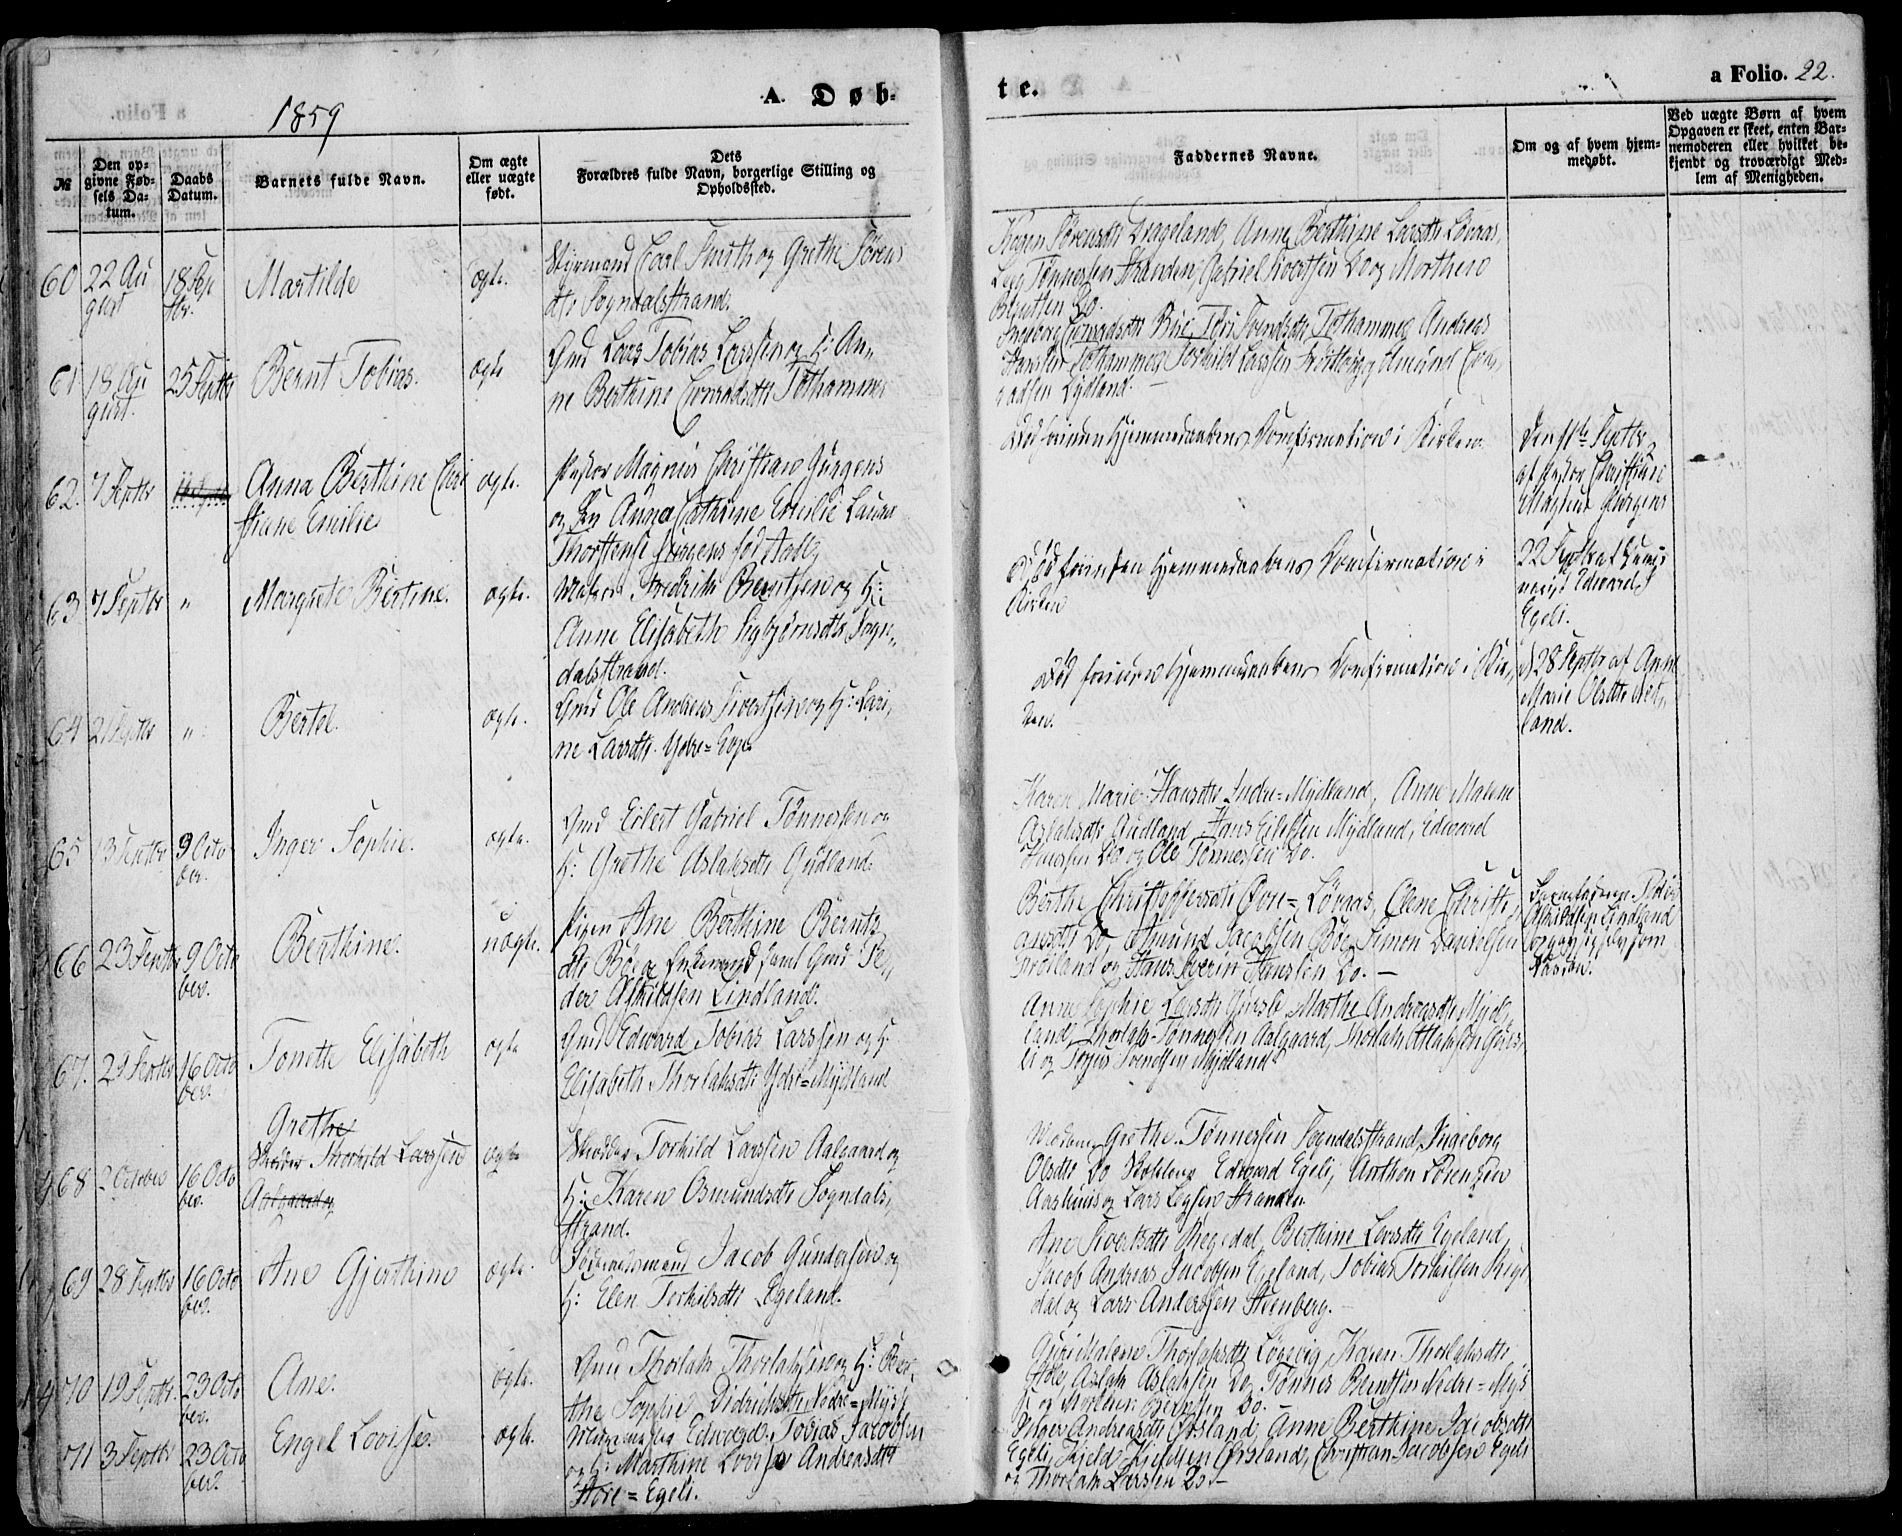 A. Døb-
te.
a Folio. 22.
1859
№
Den op-
givne Fød-
sels Da-
tum.
Daabs
Datum.
Barnets fulde Navn.
Om ægte
eller uægte
født.
Dets
Forældres fulde Navn, borgerlige Stilling og
Opholdssted.
Faddernes Navne.
Om og af hvem hjem-
medøbt.
Ved uægte Børn af hvem
Opgaven er skeet, enten Bar-
nemoderen eller hvilket be-
kjendt og troværdigt Med-
lem af Menigheden.
60 22 Au
gust
18 Sep
tbr.
Martilde
ægte.
Styrmand Carl Smith og Grethe Sørens
dtr Sogndalsstrand.
Sørensdtr Drageland, Anne Berthine Larsdtr Løvaas,
Tønnessen Stranden, Gabriel Do og Morthen
Do.
61 18 Au
gust.
25 Septbr
Bernt Tobias.
ægte
Gmd Lars Tobias Larssen og H: An-
ne Berthine Conradsdtr Tothammer
Ingeborg Conradsdtr Bøe, Tøri Svendsdtr Tothammer, Andreas
Hanssen Tothammer, Torkild Larssen og Omund Con-
radsen Lydland.
62. 7 Septbr
Anna Berthine Chri
stiane Emilie
ægte.
Pastor Magnus Christian Gürgens
og Fru Anna Cathrine Emilie Laura
Thorstense Gürgens fød
Død forinden Hjemmedaabens Confirmation i Kirken.
Den 11te Septbr
af Pastor Christian
Magnus Gürgens
63 7 Septbr "
Margrete Bertine.
ægte.
Fredrik Berntsen og H:
Anne Elisabeth Sigbjørnsdtr Sogn-
dalsstrand.
Død forinden Hjemmedaabens Confirmation i
Kirken
22 Septbr af
Edward
Egeli.
64 21 Septbr "
Bertel.
ægte.
Gmd Ole Andreas Sivertsen og H: Lari-
ne Larsdtr Ydre=Ege.
Død forinden Hjemmedaabens Confirmation i Kir-
ken.
d 28 Septbr af Anne
Marie Olsdtr Net-
land.
65 13 Septbr
9 Octo
ber.
Inger Sophie.
ægte.
Gmd Eilert Gabriel Tønnessen og
H: Grethe Aslaksdtr Gydland.
Karen Marie Hansdtr Indre=Mydland, Anne Malene
Aslaksdtr Gudland, Hans Eilertsen Mydland, Edward
Hanssen Do og Ole Tønnessen Do.
66 23 Septbr
9 Octo
ber.
Berthine.
uægte.
Pigen Ane Berthine Bernts
dtr Bøe og Enkemand samt Gmd Pe-
der Askildsen Lindland.
Berthe Christoffersdtr Øvre=Løvaas, Olene Christi-
ansdtr Do, Omund Jacobsen Bøe, Simon Danielsen
Frøiland og Hans Severin Hanssen Do. —
Barnefaderen Peder
Askildsen Lindland
opgav sig selv som
Fader.
67. 29 Septbr
16 Octo
ber.
Tonette Elisabeth
ægte
Gmd Edward Tobias Larssen og H:
Elisabeth Thorlaksdtr Ydre=Mydland
Anne Sophie Larsdtr Gursli, Marthe Andreasdtr Myd-
land, Thorlak Tønnessen Aalgaard, Thorlak Atlaksen Gurs-
li og Torjus Svendsen Mydland
68 2 October
16 Octo
ber.
Grethe
Skræder Thorkild Larssen
Aalgaard og
ægte
Skræder Torkild Larssen Aalgaard og
H: Karen Osmundsdtr Sogndals-
strand.
Madame Grethe Tønnessen Sogndalsstrand, Ingeborg
Olsdtr Do, Edward Egeli, Anthon Sørensen
Aarhuus og Lars Stranden.
69 28 Septbr
16 Octo
ber.
Ane Gjerthine
ægte.
Jacob Gundersen og
H: Elen Torkilsdtr Egeland.
Ane Sivertsdtr Regedal, Berthine Larsdtr Egeland,
Jacob Andreas Jacobsen Egeland, Tobias Torkilsen Rege
dal og Lars Anderssen Steenberg. —
70 19 Septbr.
23 Octo
ber.
Ane.
ægte.
Gmd Thorlak Thorlaksen og H: Ber-
the Sophie Didriksdtr Nedre=Mysse
Guri Malene Thorlaksdtr Løgevig, Karen Thorlaksdtr
Aslak Aslaksen Do, Tønnes Berntsen Nedre=Mys
se og Berntsen Do.
71 3 Septbr
23 Octo
ber.
Engel Lovise.
ægte.
Edward Tobias Jacobsen
og H: Marthine Lovise Andreasdtr
Store=Egeli.
Inger Andreasdtr Ørsland, Anne Berthine Jacobsdtr
Egeli, Kjeld Kjeldsen Ørsland, Christian Jacobsen Egeli
og Thorlak Larssen Do. —